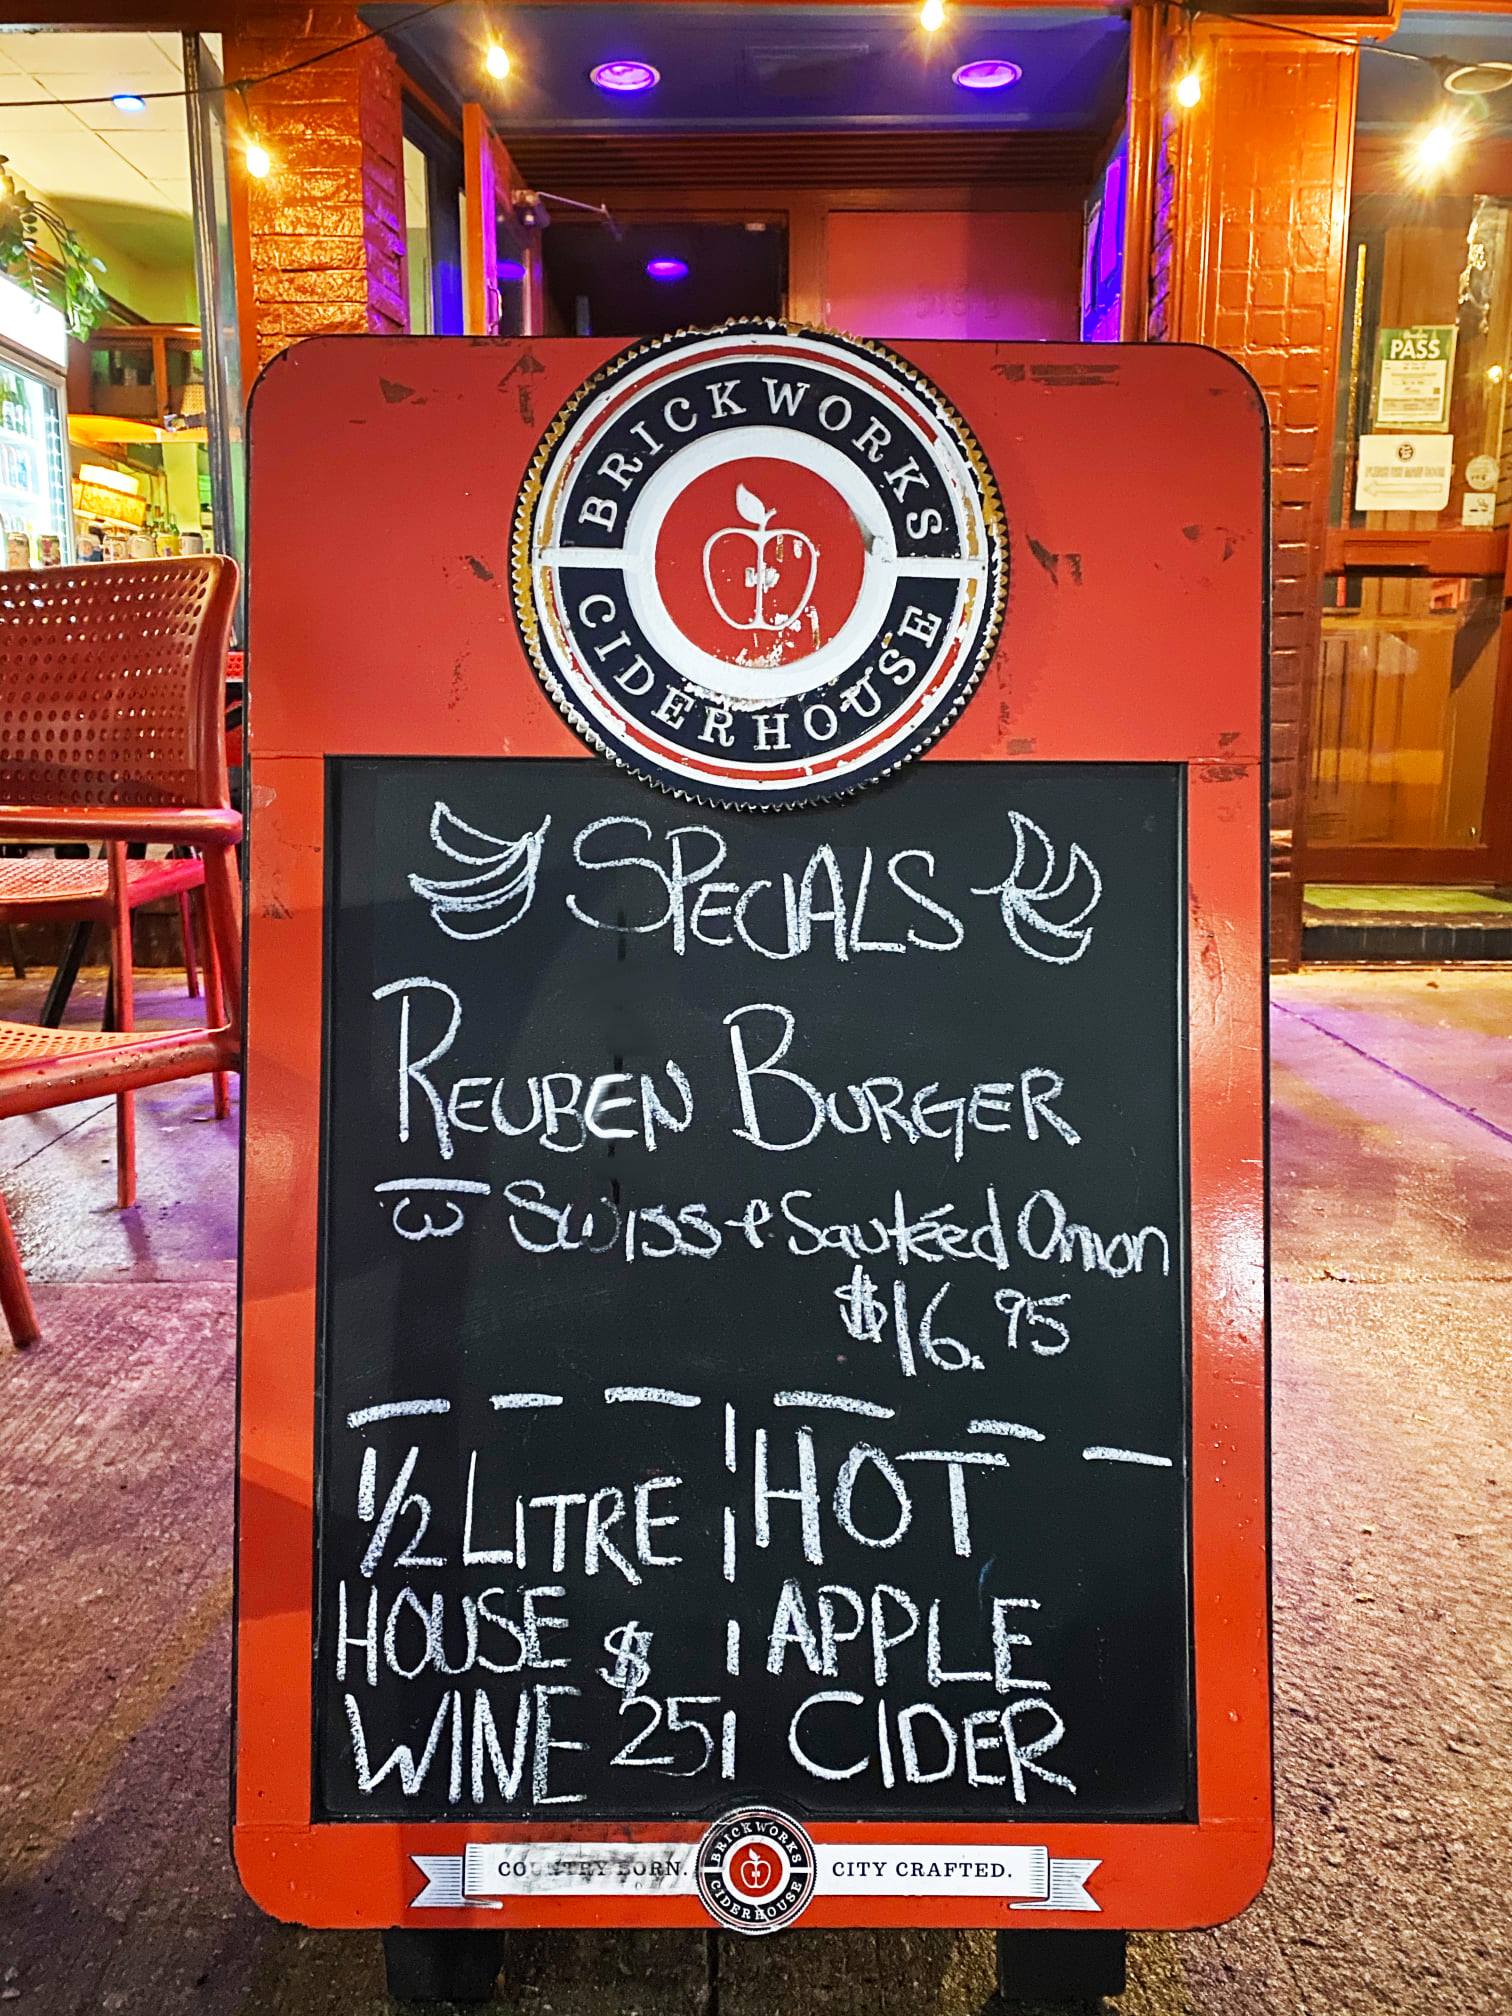 BRICKWORKS
CIDERHOUSE
SPECIALS
REUBEN BURGER
w̅ SWISS + Sautéed Onion
$16.95
1/2 LITRE
HOUSE
WINE $25
HOT
APPLE
CIDER
COUNTRY BORN. CITY CRAFTED.
BRICKWORKS
CIDERHOUSE
PASS